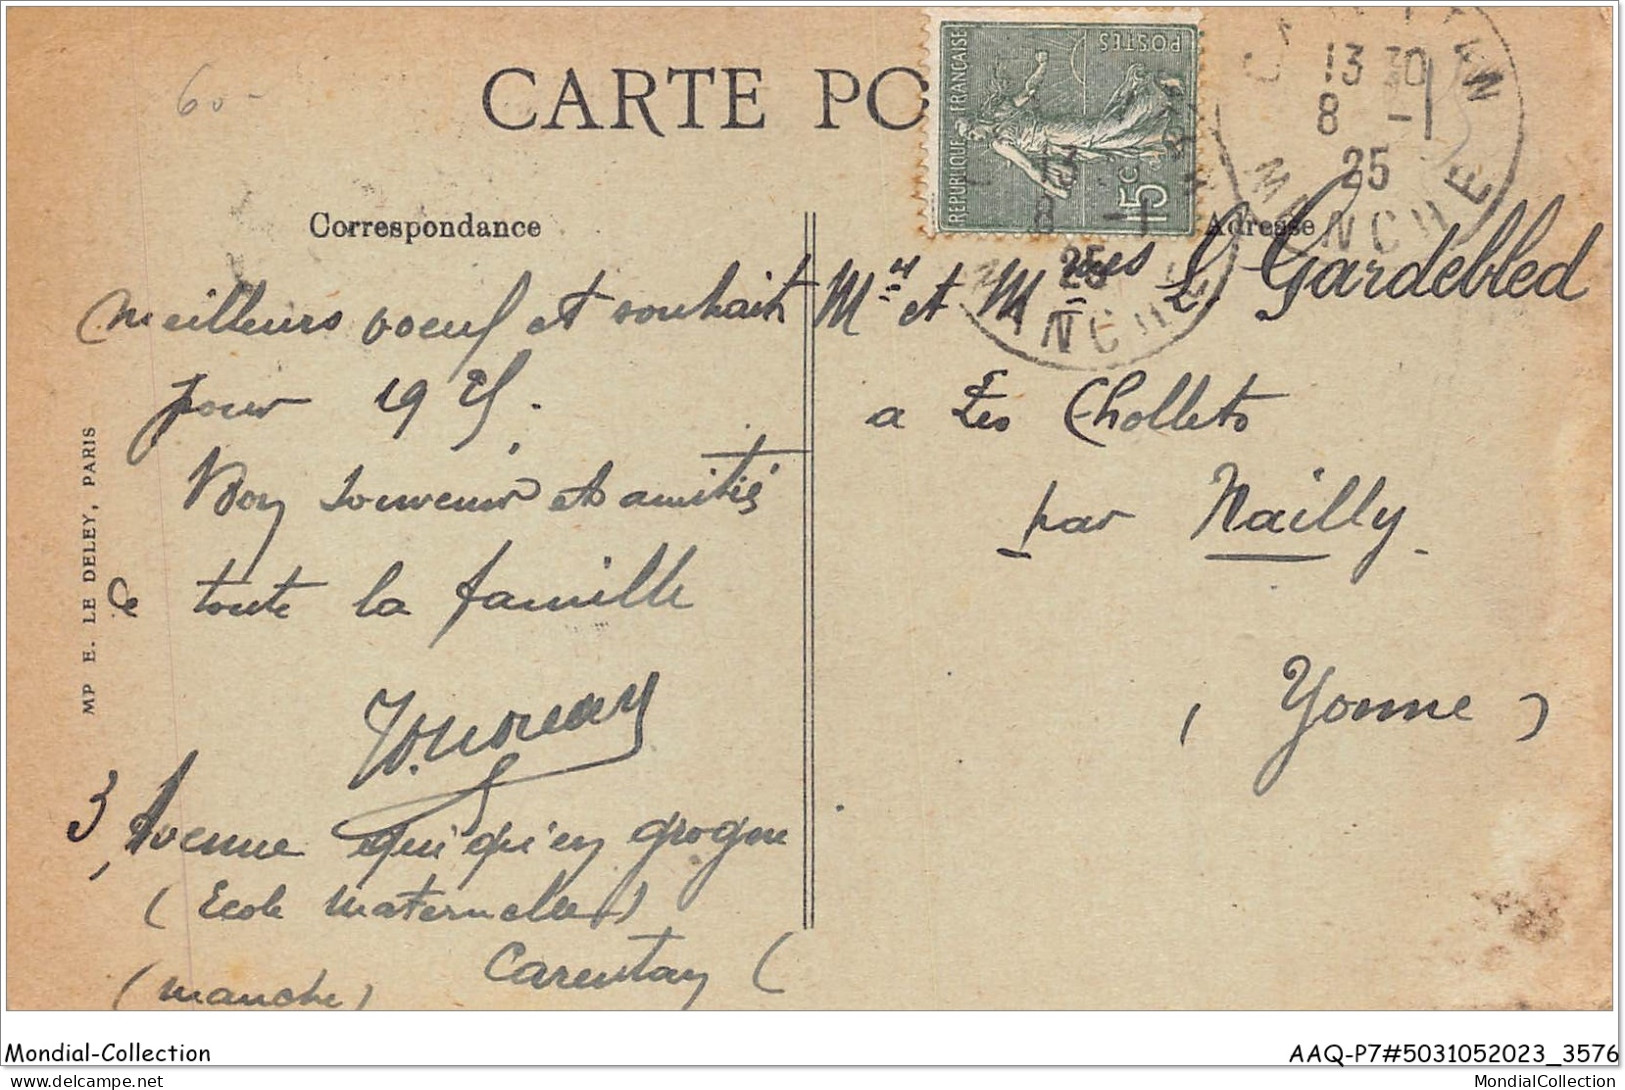 60-
CARTE PO
RÉPUBLIQUE FRANÇAISE
POSTES
15c
13 30
8 -1
25
MANCHE
13
8 -1
25
MANCHE
Correspondance
Adresse
Meilleurs voeux et souhaits
pour 1925.
Bon souvenir et amitiés
de toute la famille
3, Avenue Qui qu'en grogne
(Ecole Maternelle)
Carentan (
(Manche)
Mr et Mmes L. Gardebled
a Les Chollets
par Nailly.
(Yonne)
MP E. LE DELEY, PARIS
Mondial-Collection
AAQ-P7#5031052023_3576
delcampe.net
MondialCollection